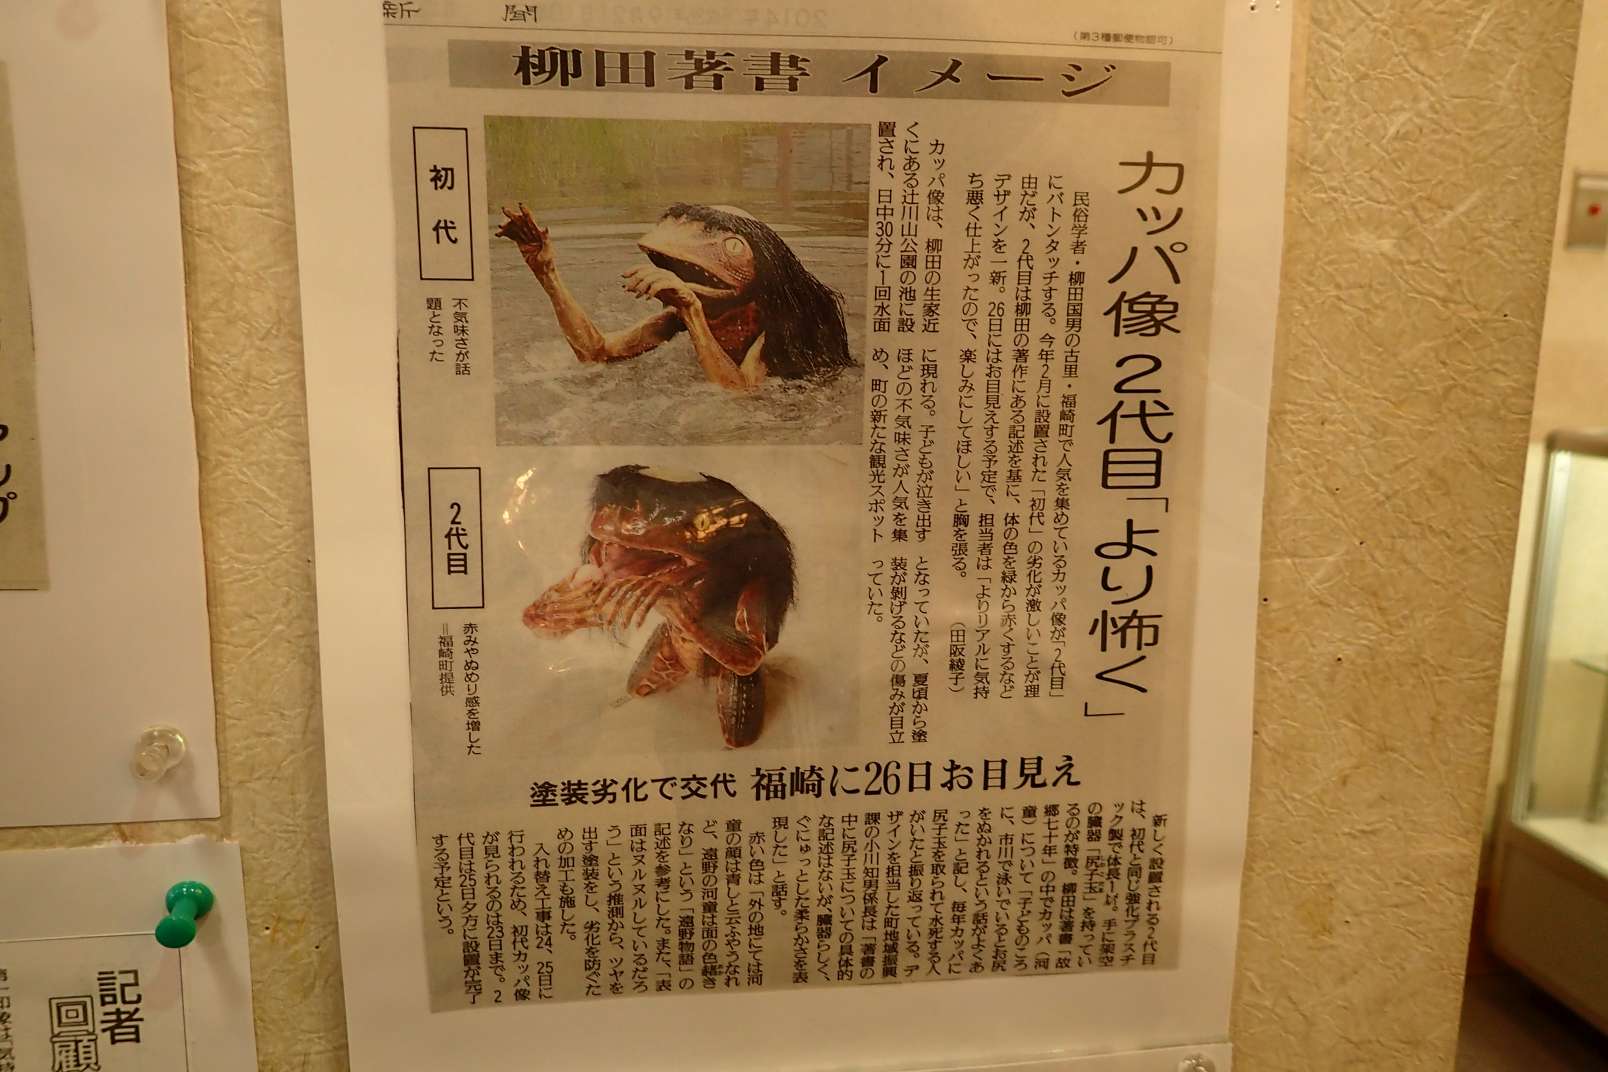 新 聞
(第3種郵便物認可)
柳田著書 イメージ
カッパ像 2代目「より怖く」
民俗学者・柳田国男の古里・福崎町で人気を集めているカッパ像が「2代目」
にバトンタッチする。今年2月に設置された「初代」の劣化が激しいことが理
由だが、2代目は柳田の著作にある記述を基に、体の色を緑から赤くするなど
デザインを一新。26日にはお目見えする予定で、担当者は「よりリアルに気持
ち悪く仕上がったので、楽しみにしてほしい」と胸を張る。 (田阪綾子)
カッパ像は、柳田の生家近
くにある辻川山公園の池に設
置され、日中30分に1回水面
に現れる。子どもが泣き出す
ほどの不気味さが人気を集
め、町の新たな観光スポット
となっていたが、夏頃から塗
装が剝げるなどの傷みが目立
っていた。
初代
不気味さが話
題となった
2代目
赤みやぬめり感を増した
=福崎町提供
塗装劣化で交代 福崎に26日お目見え
新しく設置される2代目
は、初代と同じ強化プラスチ
ック製で体長1㍍。手に架空
の臓器「尻子玉」を持ってい
るのが特徴。柳田は著書「故
郷七十年」の中でカッパ(河
童)について「子どものころ
に、市川で泳いでいるとお尻
をぬかれるという話がよくあ
った」と記し、毎年カッパに
尻子玉を取られて水死する人
がいたと振り返っている。デ
ザインを担当した町地域振興
課の小川知男係長は「著書の
中に尻子玉についての具体的
な記述はないが、臓器らしく、
ぐにゅっとした柔らかさを表
現した」と話す。
赤い色は「外の地にては河
童の顔は青しと云ふやうなれ
ど、遠野の河童は面の色赭き
なり」という「遠野物語」の
記述を参考にした。また、「表
面はヌルヌルしているだろ
う」という推測から、ツヤを
出す塗装をし、劣化を防ぐた
めの加工も施した。
入れ替え工事は24、25日に
行われるため、初代カッパ像
が見られるのは23日まで。2
代目は25日夕方に設置が完了
する予定という。
記者
回顧